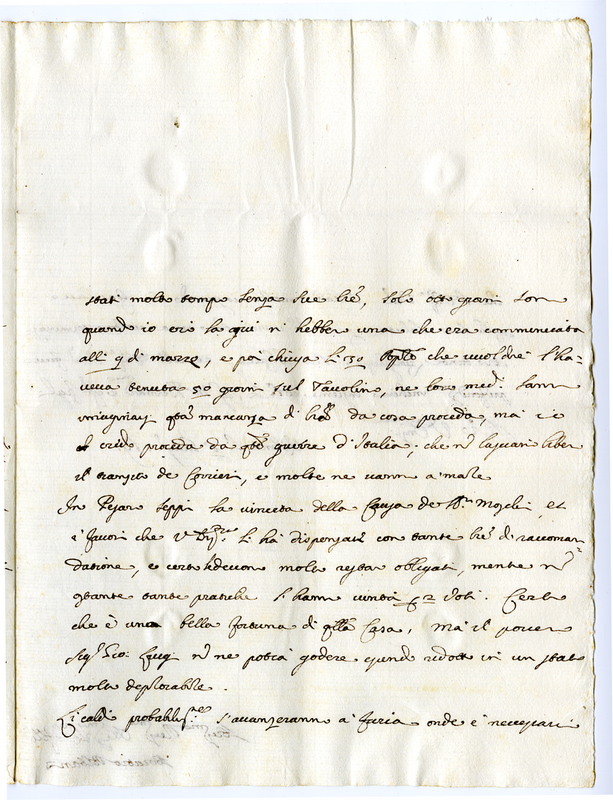 stati molto tempo senza sue lre, solo otto giorni son
quando io ero la giù n' hebber una che era cominciata
alli 9 di marzo, e poi chiusa li 30 che vuol dire l'ha-
veva tenuta 50 giorni sul Tavolino, ne loro med.i sanno
qta mancanza di lre da cosa proceda, ma io
credo proceda da qte guerre d'Italia, che nō lasciari liber
il transito de Corrieri, e molte ne vanno a male
In Pesaro seppi la vincita della Causa de SS.ri Moschi et
i favori che V. li ha dispensati con tante lre di raccoman-
datione, e certo devon molto restar obligati, mentre nō
ostante tante pratiche l'hann vinta 52 Voti. Certo
che è una bella fortuna di qlla Casa, ma il pover
Sig.r Gio: Luigi nō ne potrà godere ridotto in un stato
molto deplorabile.
Li caldi probabilm.te s'avanzeranno a furia onde è necessari